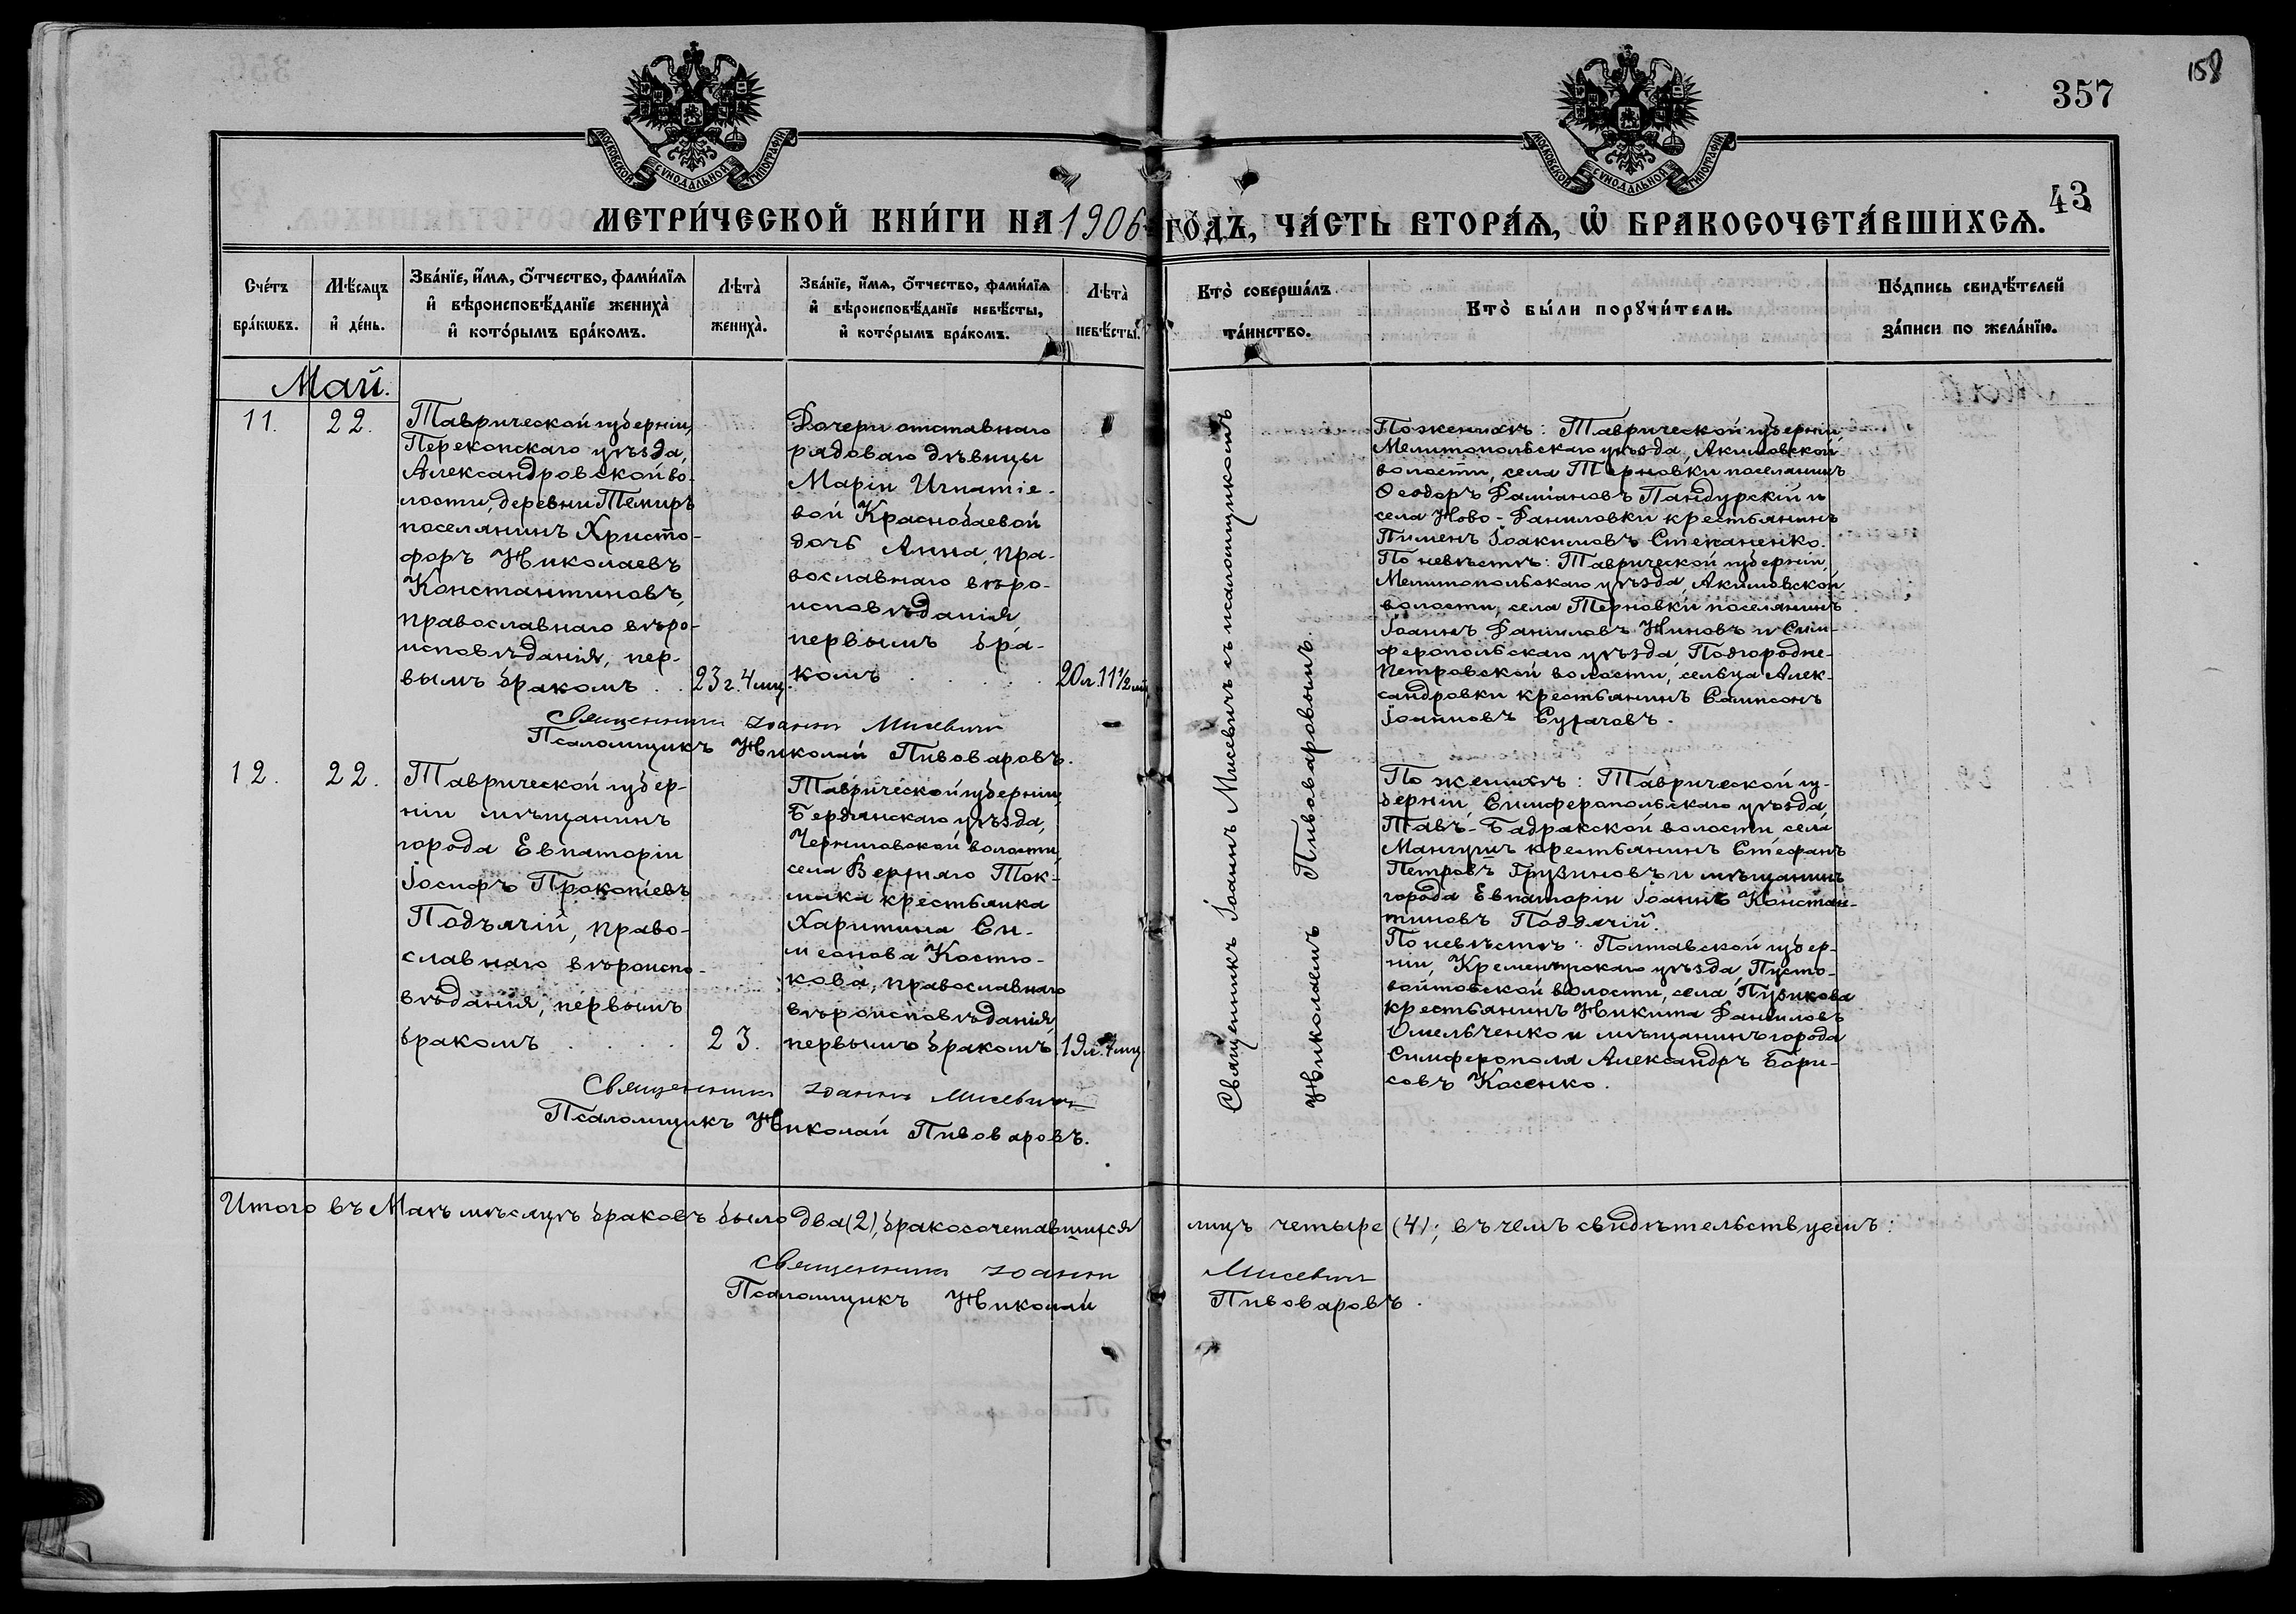 158
357
43
МОСКОВСКОЙ СѴНОДАЛЬНОЙ ТИПОГРАФІИ
МОСКОВСКОЙ СѴНОДАЛЬНОЙ ТИПОГРАФІИ
МЕТРИ́ЧЕСКОЙ КНИ́ГИ НА 1906 ГО́ДЪ, ЧА́СТЬ ВТОРА́Ѧ, Ѡ҆ БРАКОСОЧЕТА́ВШИХСѦ.
Сче́тъ
бра́кѡвъ.
Мѣ́сяцъ
и҆ де́нь.
Зва́нїе, и҆́мѧ, ѻ҆́тчество, фами́лїѧ
и҆ вѣроисповѣ́данїе жениха̀
и҆ кото́рымъ бра́комъ.
Лѣта̀
жениха̀.
Зва́нїе, и҆́мѧ, ѻ҆́тчество, фами́лїѧ
и҆ вѣроисповѣ́данїе невѣ́сты,
и҆ кото́рымъ бра́комъ.
Лѣта̀
невѣ́сты.
Кто̀ соверша́лъ
та́инство.
Кто̀ бы́ли порꙋчи́тели.
По́дпись свидѣ́телей
за́писи по жела́нїю.
Май.
11.
22.
Таврической губерніи,
Перекопскаго уѣзда,
Александровской во-
лости, деревни Темиръ
поселянинъ Христо-
форъ Николаевъ
Константиновъ,
православнаго вѣро-
исповѣданія, пер-
вымъ бракомъ . .
23 г. 4 мц.
Дочери отставнаго
рядоваго дѣвицы
Маріи Игнатіе-
вой Краснобаевой
дочь Анна, пра-
вославнаго вѣро-
исповѣданія
первымъ бра-
комъ . . . .
20 л. 11½ мц
Священникъ Іоаннъ Мисевичъ
Псаломщикъ Николай Пивоваровъ.
Священникъ Іоаннъ Мисевичъ съ псаломщикомъ
Николаемъ Пивоваровымъ.
По женихѣ: Таврической губерніи,
Мелитопольскаго уѣзда, Акимовской
волости, села Терновки поселянинъ
Ѳеодоръ Даміановъ Пандурскій и
села Ново-Даниловки крестьянинъ
Пименъ Іоакимовъ Степаненко.
По невѣстѣ: Таврической губерніи,
Мелитопольскаго уѣзда, Акимовской
волости, села Терновки поселянинъ
Іоаннъ Даниловъ Ниновъ и Сим-
феропольскаго уѣзда, Подгородне-
Петровской волости, сельца Алек-
сандровки крестьянинъ Сампсонъ
Іоанновъ Сугаковъ.
12.
22.
Таврической губер-
ніи мѣщанинъ
города Евпаторіи
Іосифъ Прокопіевъ
Подъячій, право-
славнаго вѣроиспо-
вѣданія, первымъ
бракомъ . . . .
23.
Таврической губерніи,
Бердянскаго уѣзда,
Черниговской волости,
села Верхняго Ток-
мака крестьянка
Харитина Си-
меонова Костю-
кова, православнаго
вѣроисповѣданія,
первымъ бракомъ
19 л. 7 мц
Священникъ Іоаннъ Мисевичъ
Псаломщикъ Николай Пивоваровъ.
По женихѣ: Таврической гу-
берніи, Симферопольскаго уѣзда,
Тавъ-Бадракской волости села
Мангушъ крестьянинъ Стефанъ
Петровъ Грузиновъ и мѣщанинъ
города Евпаторіи Іоаннъ Констан-
тиновъ Поддячій.
По невѣстѣ: Полтавской губер-
ніи, Кременчугскаго уѣзда, Пусто-
войтовской волости, села Пузикова
крестьянинъ Никита Даниловъ
Омельченко и мѣщанинъ города
Симферополя Александръ Бори-
совъ Косенко.
Итого въ Маѣ мѣсяцѣ браковъ было два (2), бракосочетавшихся лицъ четыре (4); въ чемъ свидѣтельствуемъ:
Священникъ Іоаннъ Мисевичъ
Псаломщикъ Николай Пивоваровъ.